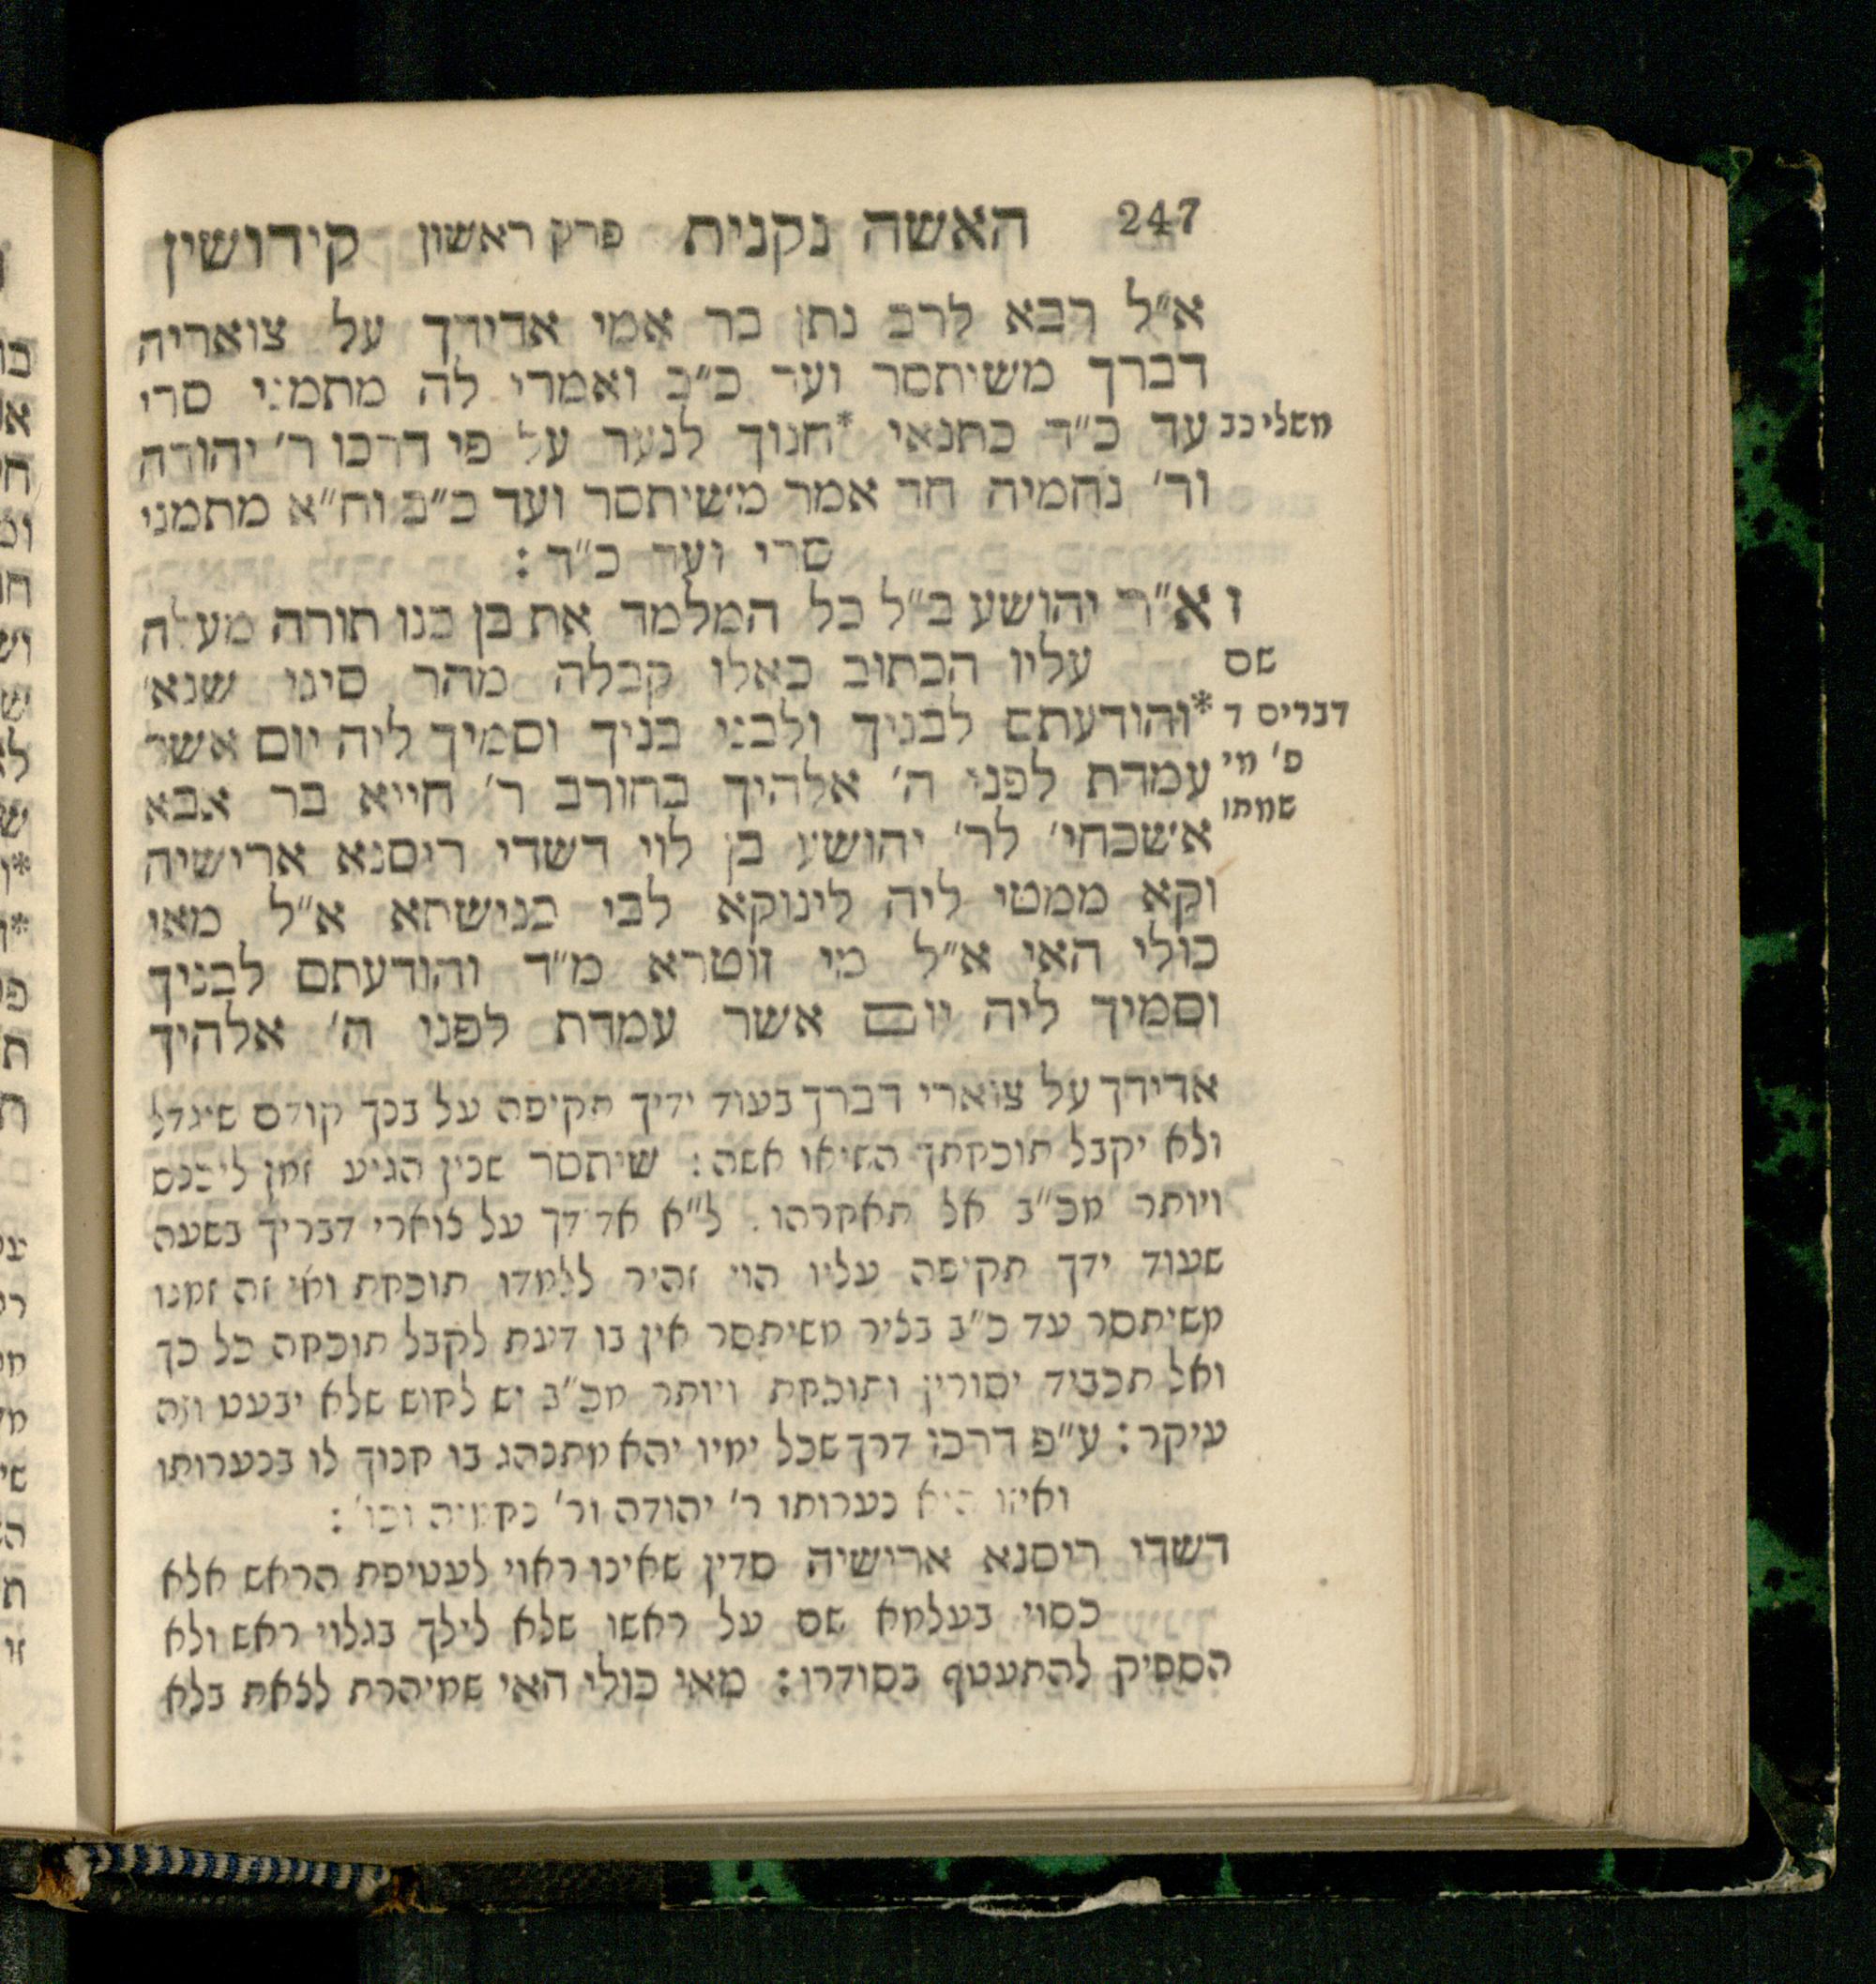 247 האשה נקנית פרק ראשון קידושין
א״ל רבא לרב נתן בר אמי אדידך על צואריה
דברך משיתסר ועד כ״ב ואמרי לה מתמני סרי
משלי כב עד כ״ד כתנאי *חנוך לנער על פי דרכו ר׳ יהודה
ור׳ נחמיה חד אמר משיתסר ועד כ״ב וח״א מתמני
סרי ועד כ״ד :
ז א״ר יהושע ב״ל כל המלמד את בן בנו תורה מעלה
שם עליו הכתוב כאלו קבלה מהר סיני שנא׳
דברים ד *והודעתם לבניך ולבני בניך וסמיך ליה יום אשר
פ׳ מי עמדת לפני ה׳ אלהיך בחורב ר׳ חייא בר אבא
שמתו אשכחי׳ לר׳ יהושע בן לוי דשדי ריסנא ארישיה
וקא ממטי ליה לינוקא לבי כנישתא א״ל מאי
כולי האי א״ל מי זוטרא מ״ד והודעתם לבניך
וסמיך ליה יום אשר עמדת לפני ה׳ אלהיך
אדידך על צוארי דברך בעוד ידיך תקיפה על בנך קודם שיגדל
ולא יקבל תוכחתך השיאו אשה : שיתסר שכין הגיע זמן ליכנס
ויותר מכ״ב אל תאחרהו. ל״א אדידך על צוארי דבריך בשעה
שעוד ידך תקיפה עליו הוי זהיר ללמדו תוכחת ואי זה זמנו
משיתסר עד כ״ב בציר משיתסר אין בו דעת לקבל תוכחה כל כך
ואל תכביד יסורין ותוכחת ויותר מכ״ב יש לחוש שלא יבעט וזה
עיקר : ע״פ דרכו דרך שכל ימיו יהא מתנהג בו חנוך לו בנערותו
ואיזו היא נערותו ר׳ יהודה ור׳ נחמיה וכו׳ :
דשדי ריסנא ארישיה סדין שאינו ראוי לעטיפת הראש אלא
כסוי בעלמא שם על ראשו שלא לילך בגלוי ראש ולא
הספיק להתעטף בסודרו : מאי כולי האי שמיהרת לצאת בלא